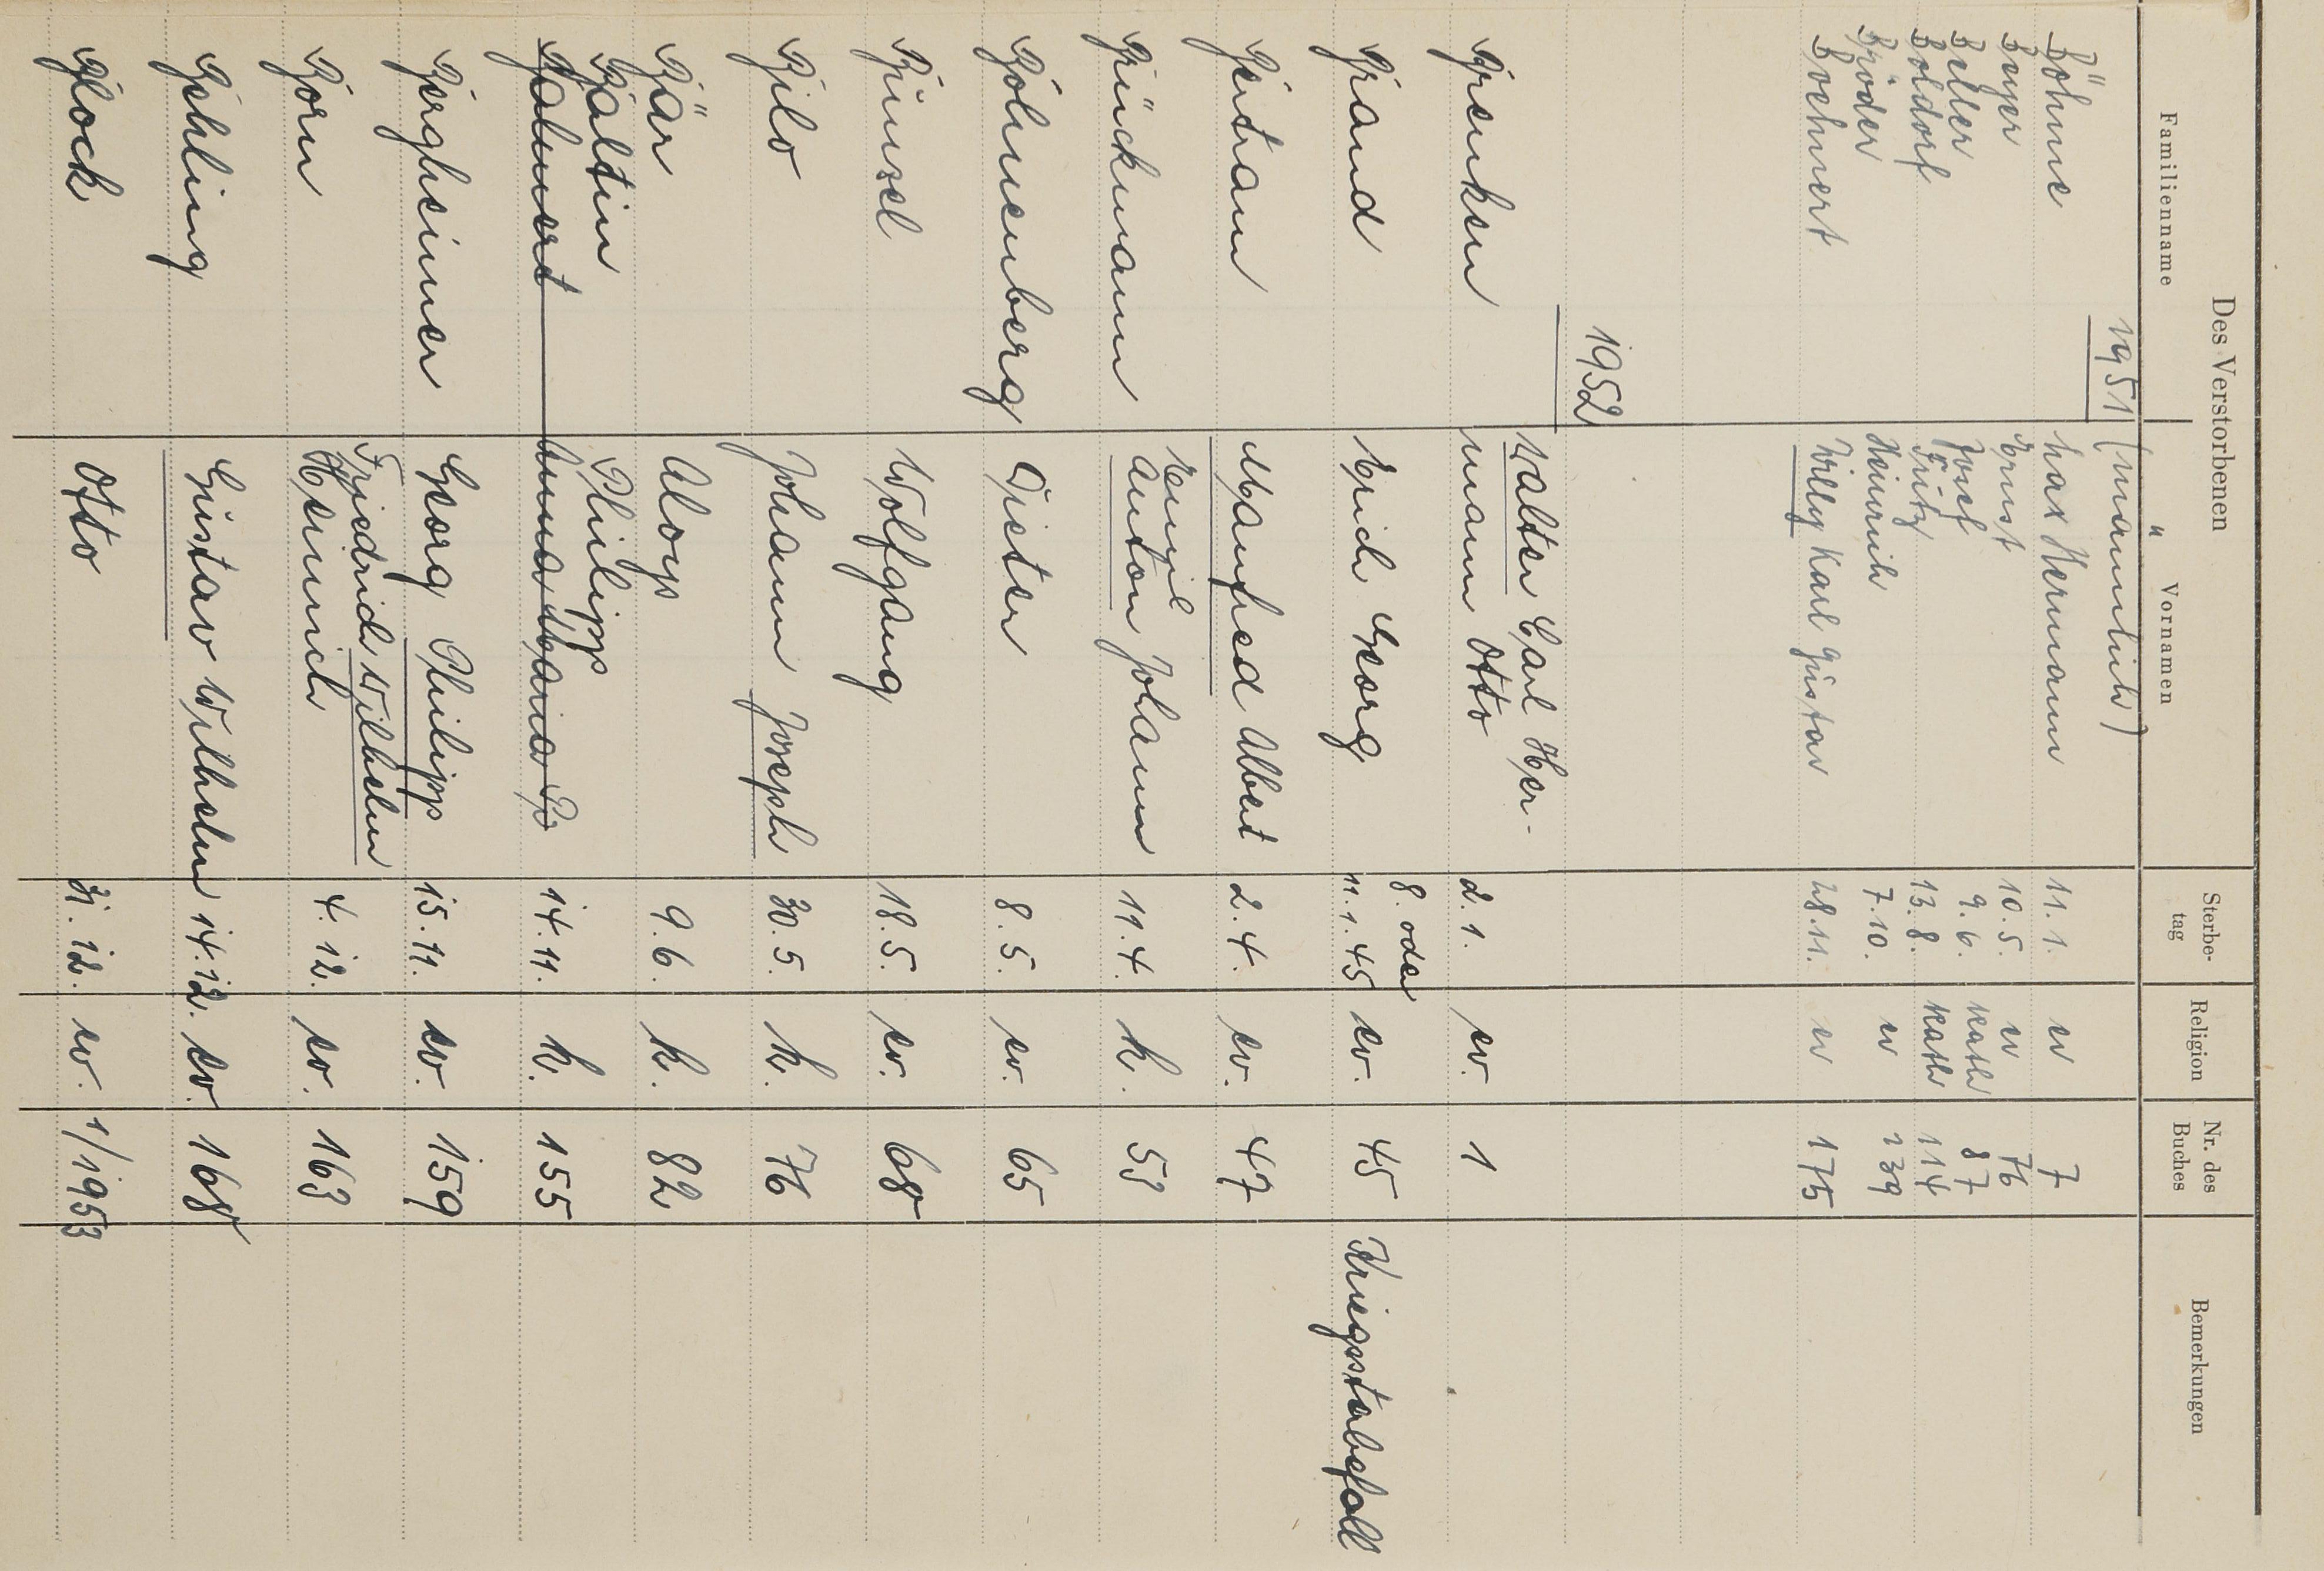 Des Verstorbenen
Familienname " Vornamen Sterbe-tag Religion Nr. des Buches Bemerkungen
1951 (männlich)
Böhme Max Hermann 11.1. ev 7
Beyer Ernst 10.5. ev 76
Beller Josef 9.6. kath 87
Boldorf Fritz 13.8. kath 114
Bröder Heinrich 7.10. ev 139
Boehnert Willy Karl Gustav 28.11. ev 175
1952
Brenken Walter Carl Her-
mann Otto 2.1. ev. 1
8. oder
Brand Erich Georg 11.1.45 ev. 45 Kriegssterbefall
Bertram Manfred Albert 2.4. ev. 47
Emil
Brückmann Anton Johann 11.4. k. 53
Bohnenberg Dieter 8.5. ev. 65
Bunsel Wolfgang 18.5. ev. 68
Bilo Johann Joseph 30.5. k. 76
Bär Aloys 9.6. k. 82
Baltin Philipp
Bahnert Anna Maria 14.11. k. 155
Bergheimer Georg Philipp 15.11. ev. 159
Friedrich Wilhelm
Born Heinrich 4.12. ev. 163
Behling Gustav Wilhelm 14.12. ev. 168
Block Otto 31.12. ev. 1/1953